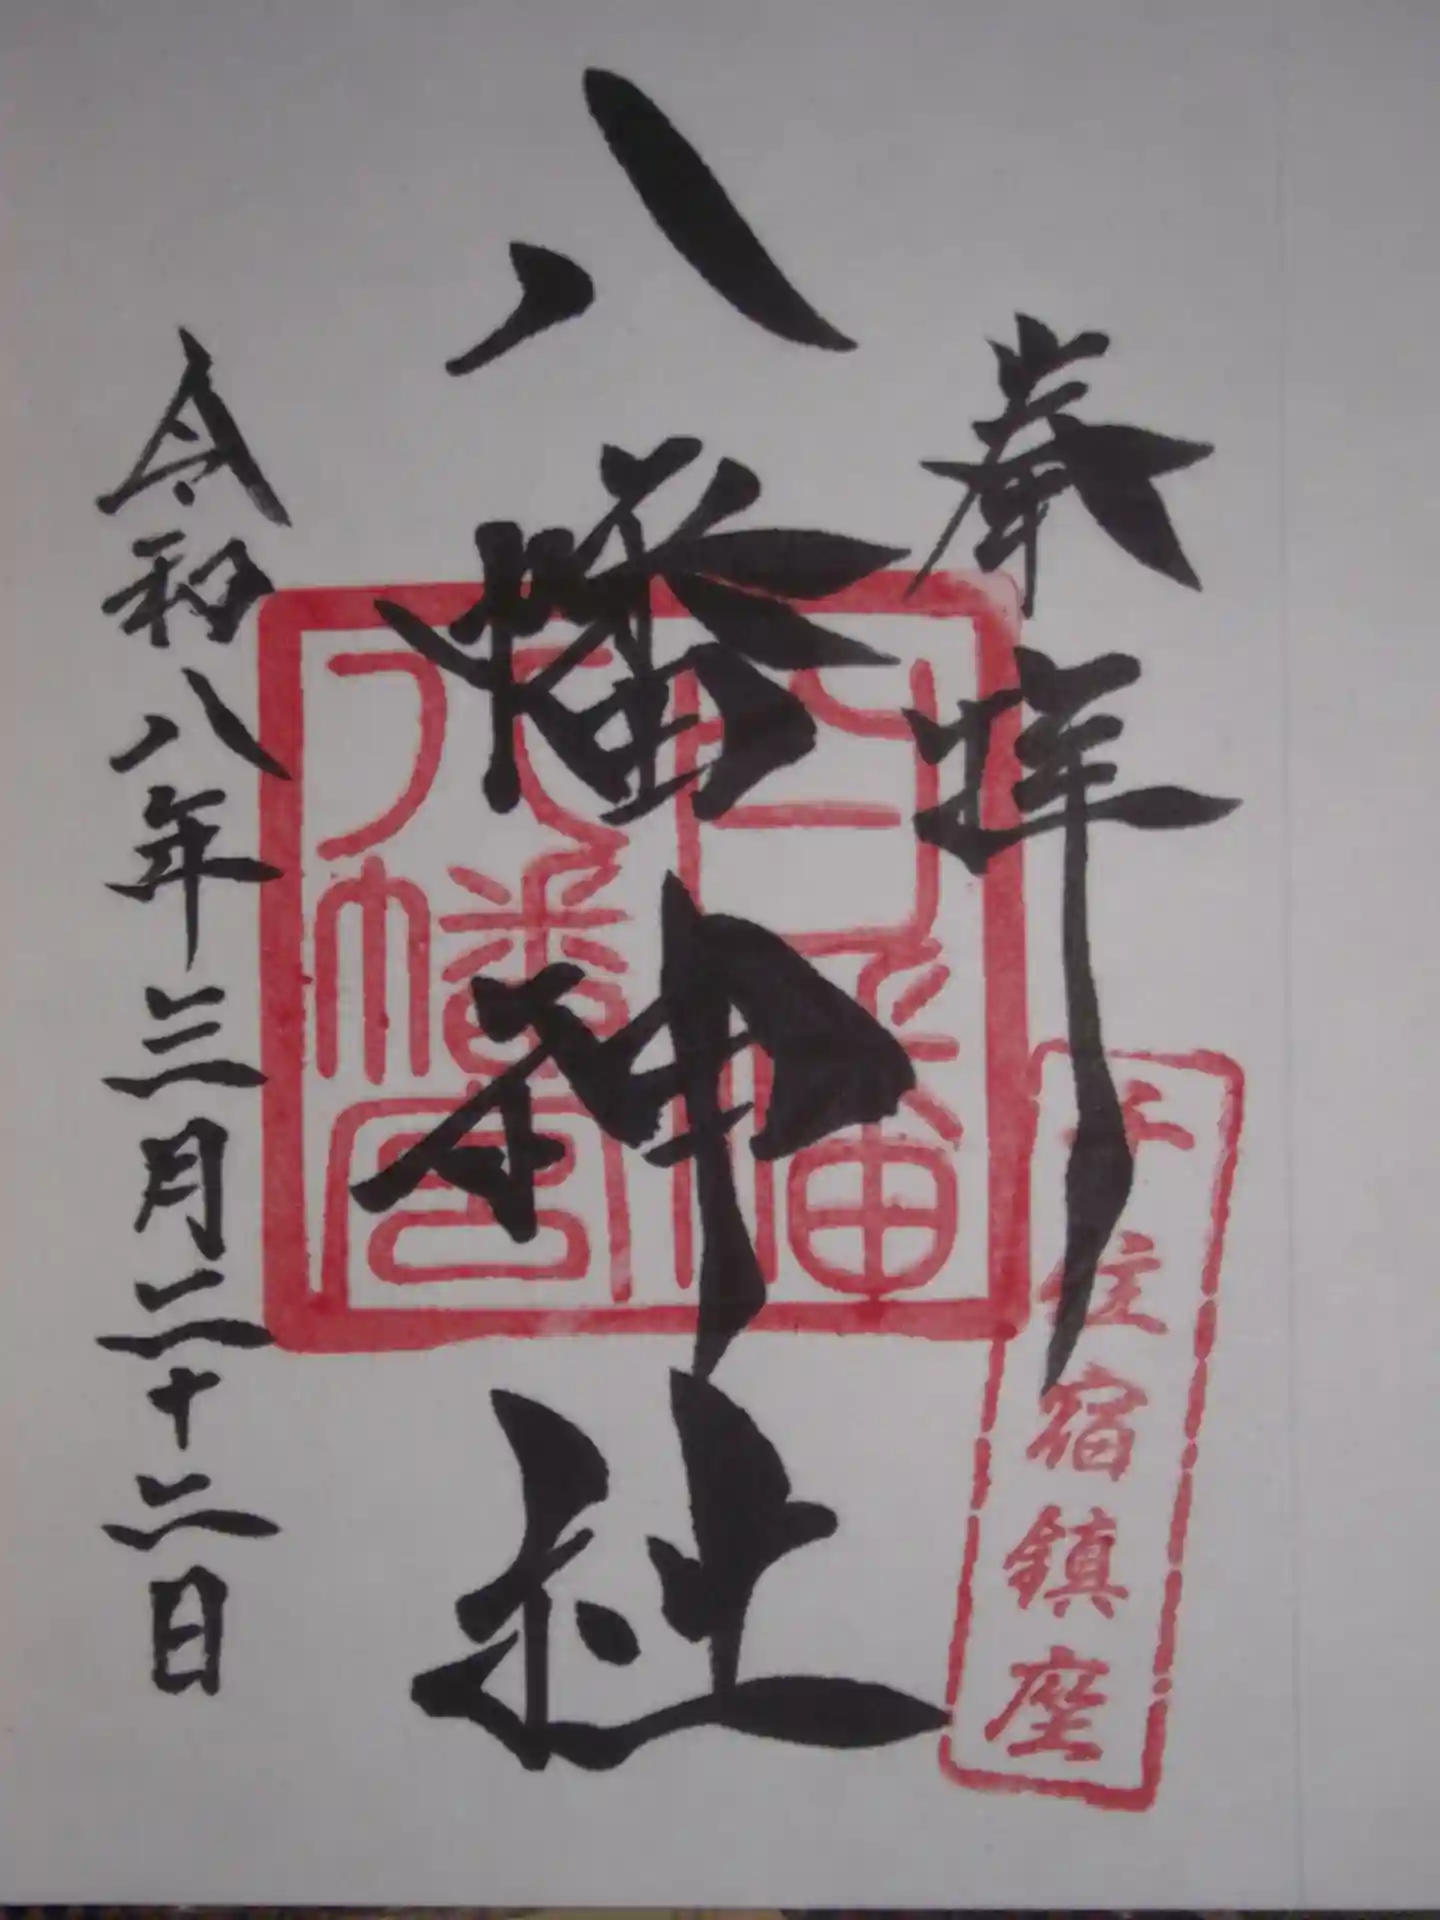 奉拝
千住宿鎮座
八幡神社
白幡
八幡宮
令和八年三月二十二日